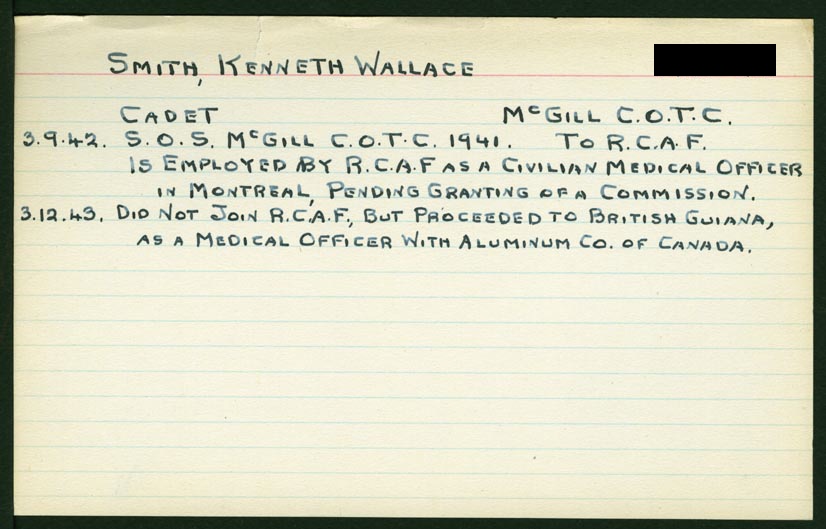 SMITH, KENNETH WALLACE
CADET McGILL C.O.T.C.
3.9.42. S.O.S. McGILL C.O.T.C. 1941. TO R.C.A.F.
IS EMPLOYED BY R.C.A.F AS A CIVILIAN MEDICAL OFFICER
IN MONTREAL, PENDING GRANTING OF A COMMISSION.
3.12.43. DID NOT JOIN R.C.A.F., BUT PROCEEDED TO BRITISH GUIANA,
AS A MEDICAL OFFICER WITH ALUMINUM CO. OF CANADA.